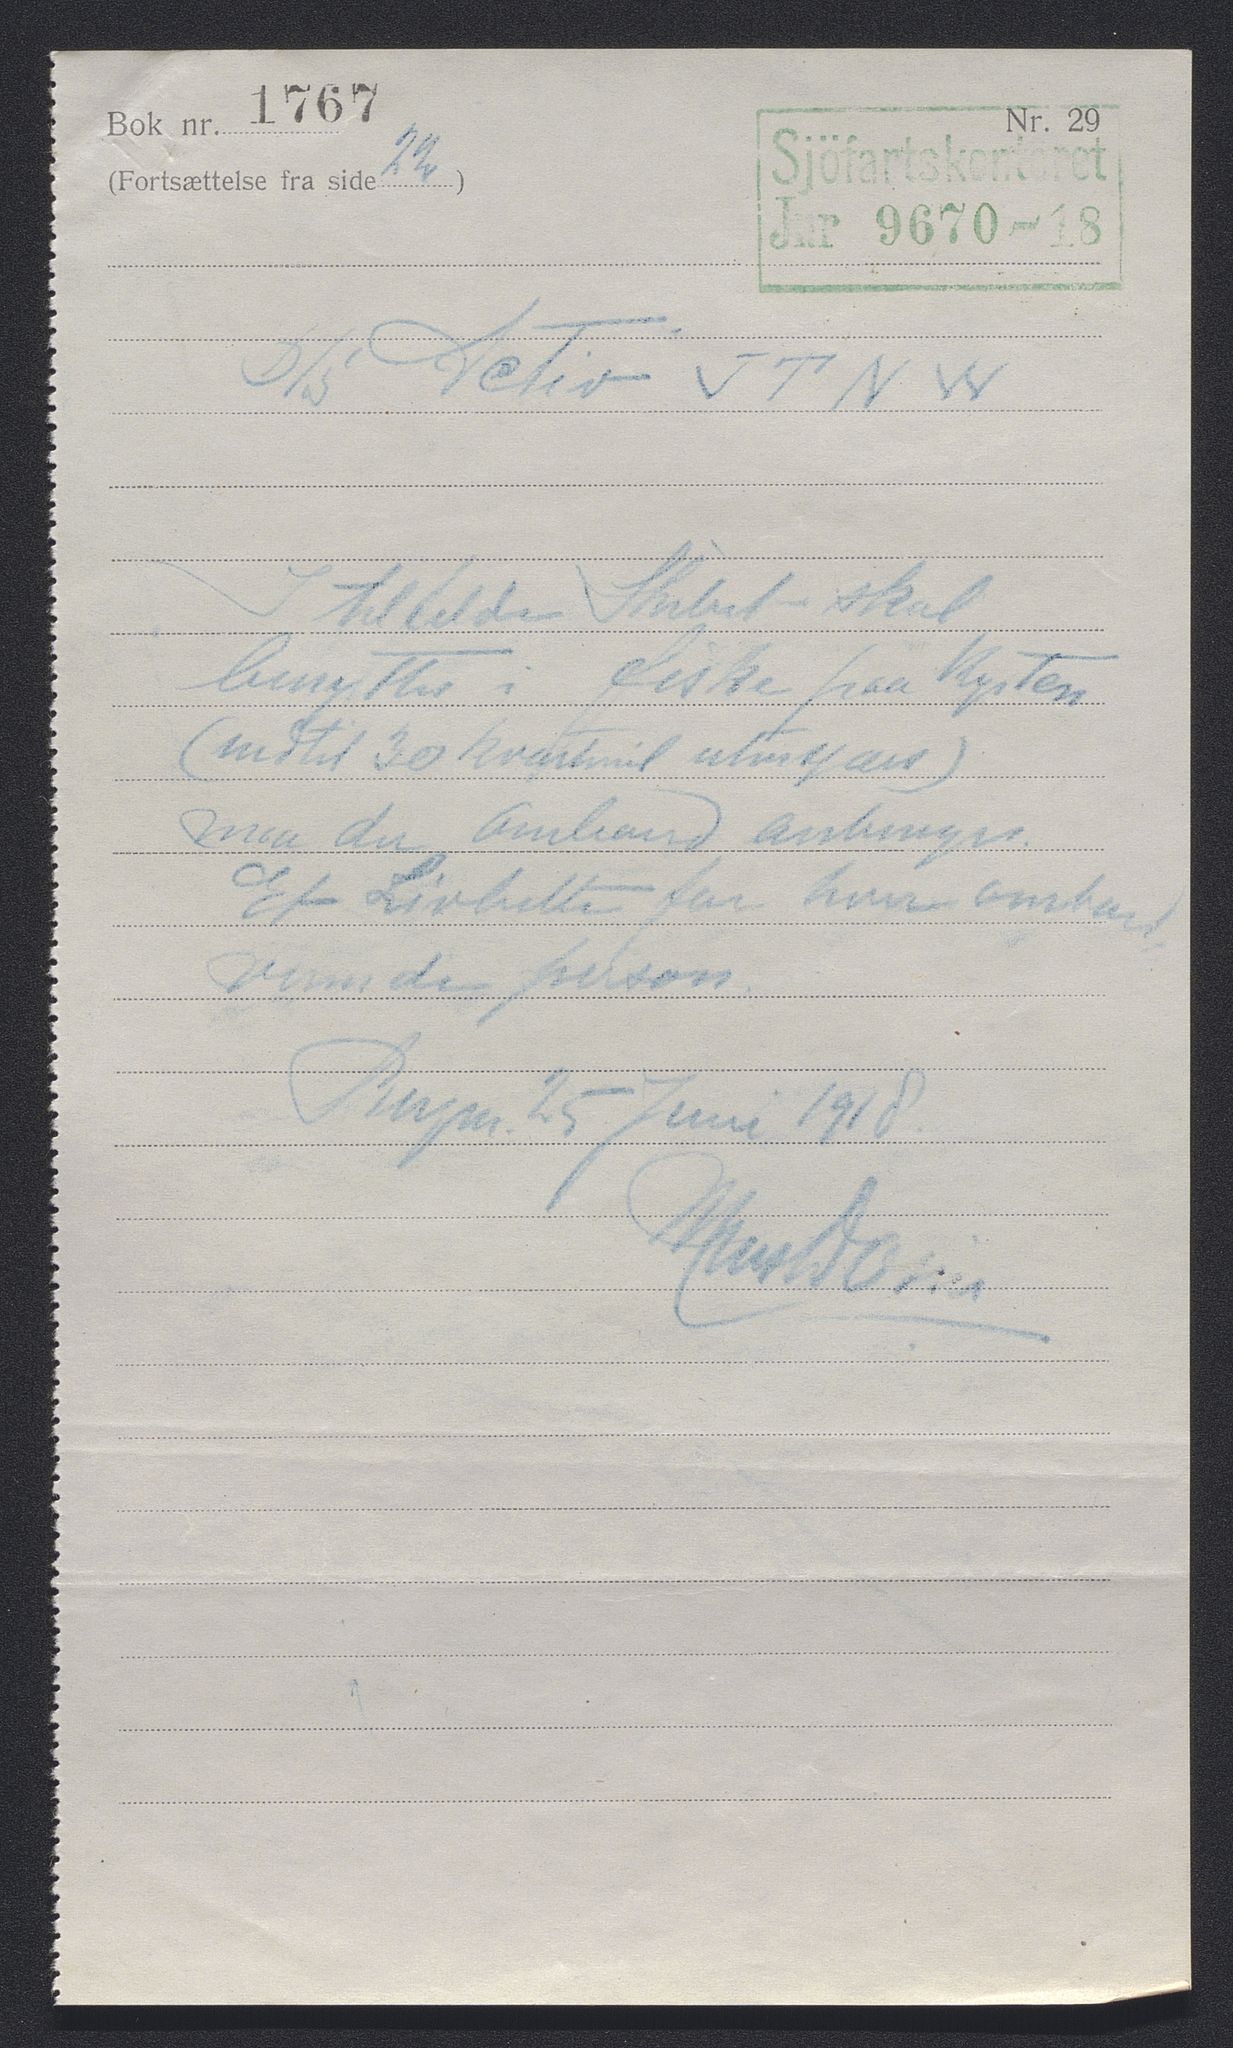 Bok nr. 1767
Nr. 29
(Fortsættelse fra side 22)
Sjöfartskontoret
Jnr 9670-18
D/S Activ J T N W
I tilfælde Skibet skal
benyttes i fiske paa kysten
(indtil 30 kvartmil utenskjærs)
maa der ombord anbringes.
Et Livbelte for hver ombord
værende person.
Bergen. 25 Juni 1918.